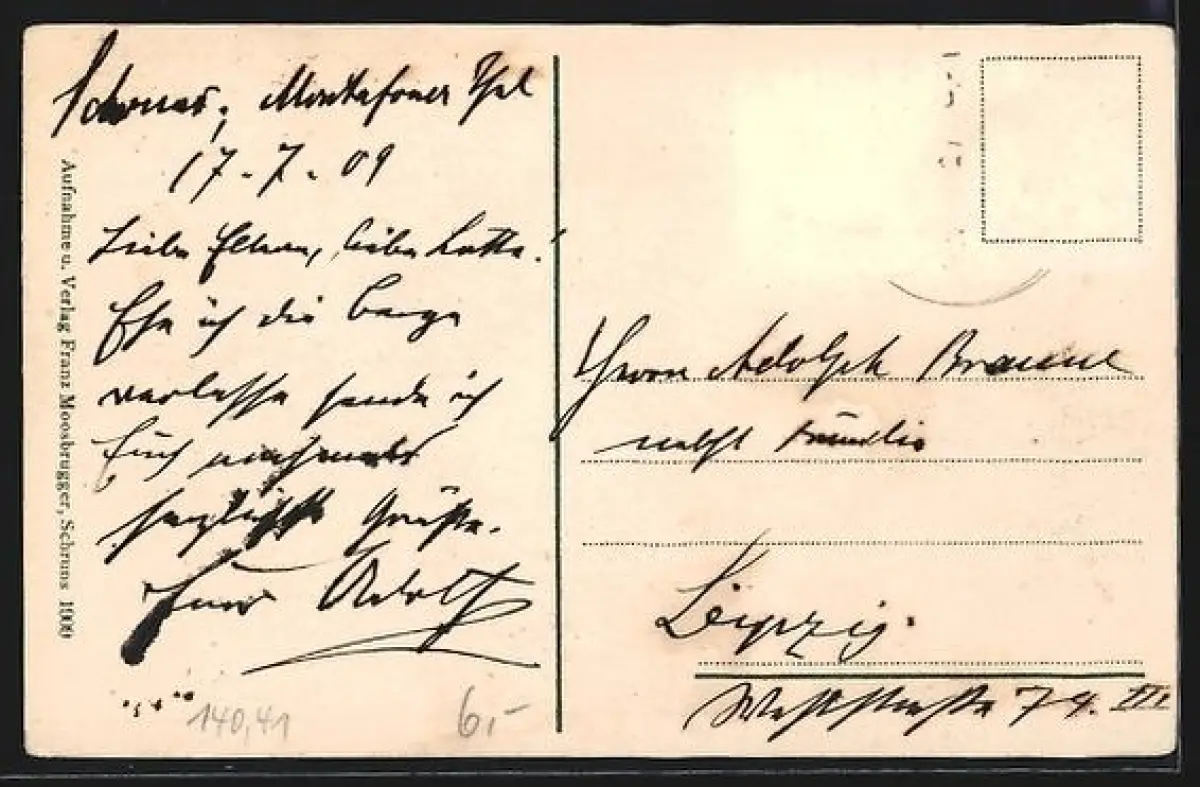 Schruns, Montafoner Thal
17-7-09
Liebe Eltern, liebe Lotte!
Ehe ich die Berge
verlasse sende ich
Euch nochmals
herzliche Grüsse.
Euer Adolf
140,41
6,-
Aufnahme u. Verlag Franz Moosbrugger, Schruns 1909
Herrn Adolph Braune
nebst Familie
Leipzig.
Weststrasse 79. III.